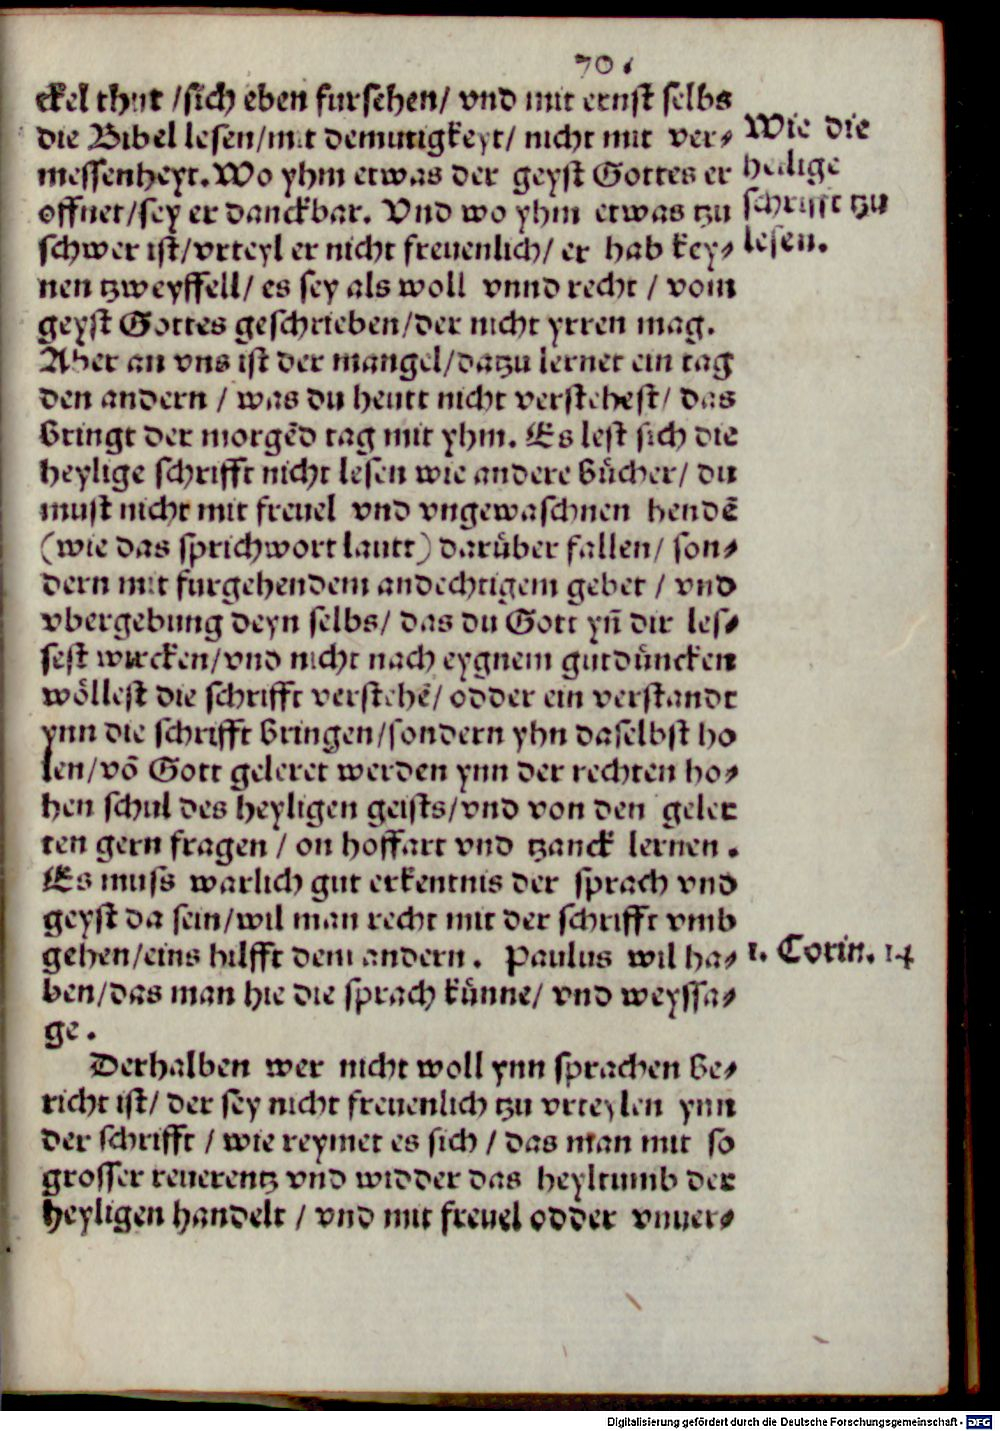 70.
ckel thut /sich eben fursehen/ vnd mit ernst selbs
die Bibel lesen/mit demutigkeyt/ nicht mit ver⸗
messenheyt. Wo yhm etwas der geyst Gottes er
offnet/sey er danckbar. Vnd wo yhm etwas tzu
schwer ist/vrteyl er nicht freuenlich/ er hab key⸗
nen tzweyffell/ es sey als woll vnnd recht / vom
geyst Gottes geschrieben/der nicht yrren mag.
Aber an vns ist der mangel/datzu lernet ein tag
den andern / was du heutt nicht verstehest/ das
bringt der morgẽd tag mit yhm. Es lest sich die
heylige schrifft nicht lesen wie andere bücher/ du
must nicht mit freuel vnd vngewaschnen hendẽ
(wie das sprichwort lautt) darüber fallen/ son⸗
dern mit furgehendem andechtigem gebet / vnd
vbergebung deyn selbs/ das du Gott yn̄ dir les⸗
sest wircken/vnd nicht nach eygnem gutdüncken
wöllest die schrifft verstehẽ/ odder ein verstandt
ynn die schrifft bringen/sondern yhn daselbst ho
len/võ Gott geleret werden ynn der rechten ho⸗
hen schul des heyligen geists/vnd von den geler
ten gern fragen / on hoffart vnd tzanck lernen.
Es muss warlich gut erkentnis der sprach vnd
geyst da sein/wil man recht mit der schrifft vmb
gehen/eins hilfft dem andern. Paulus wil ha⸗
ben/das man hie die sprach künne/ vnd weyssa⸗
ge.
Derhalben wer nicht woll ynn sprachen be⸗
richt ist/ der sey nicht freuenlich tzu vrteylen ynn
der schrifft / wie reymet es sich / das man mit so
grosser reuerentz vnd widder das heyltumb der
heyligen handelt / vnd mit freuel odder vnuer⸗
Wie die
heilige
schrifft tzu
lesen.
1. Corin. 14
Digitalisierung gefördert durch die Deutsche Forschungsgemeinschaft - DFG